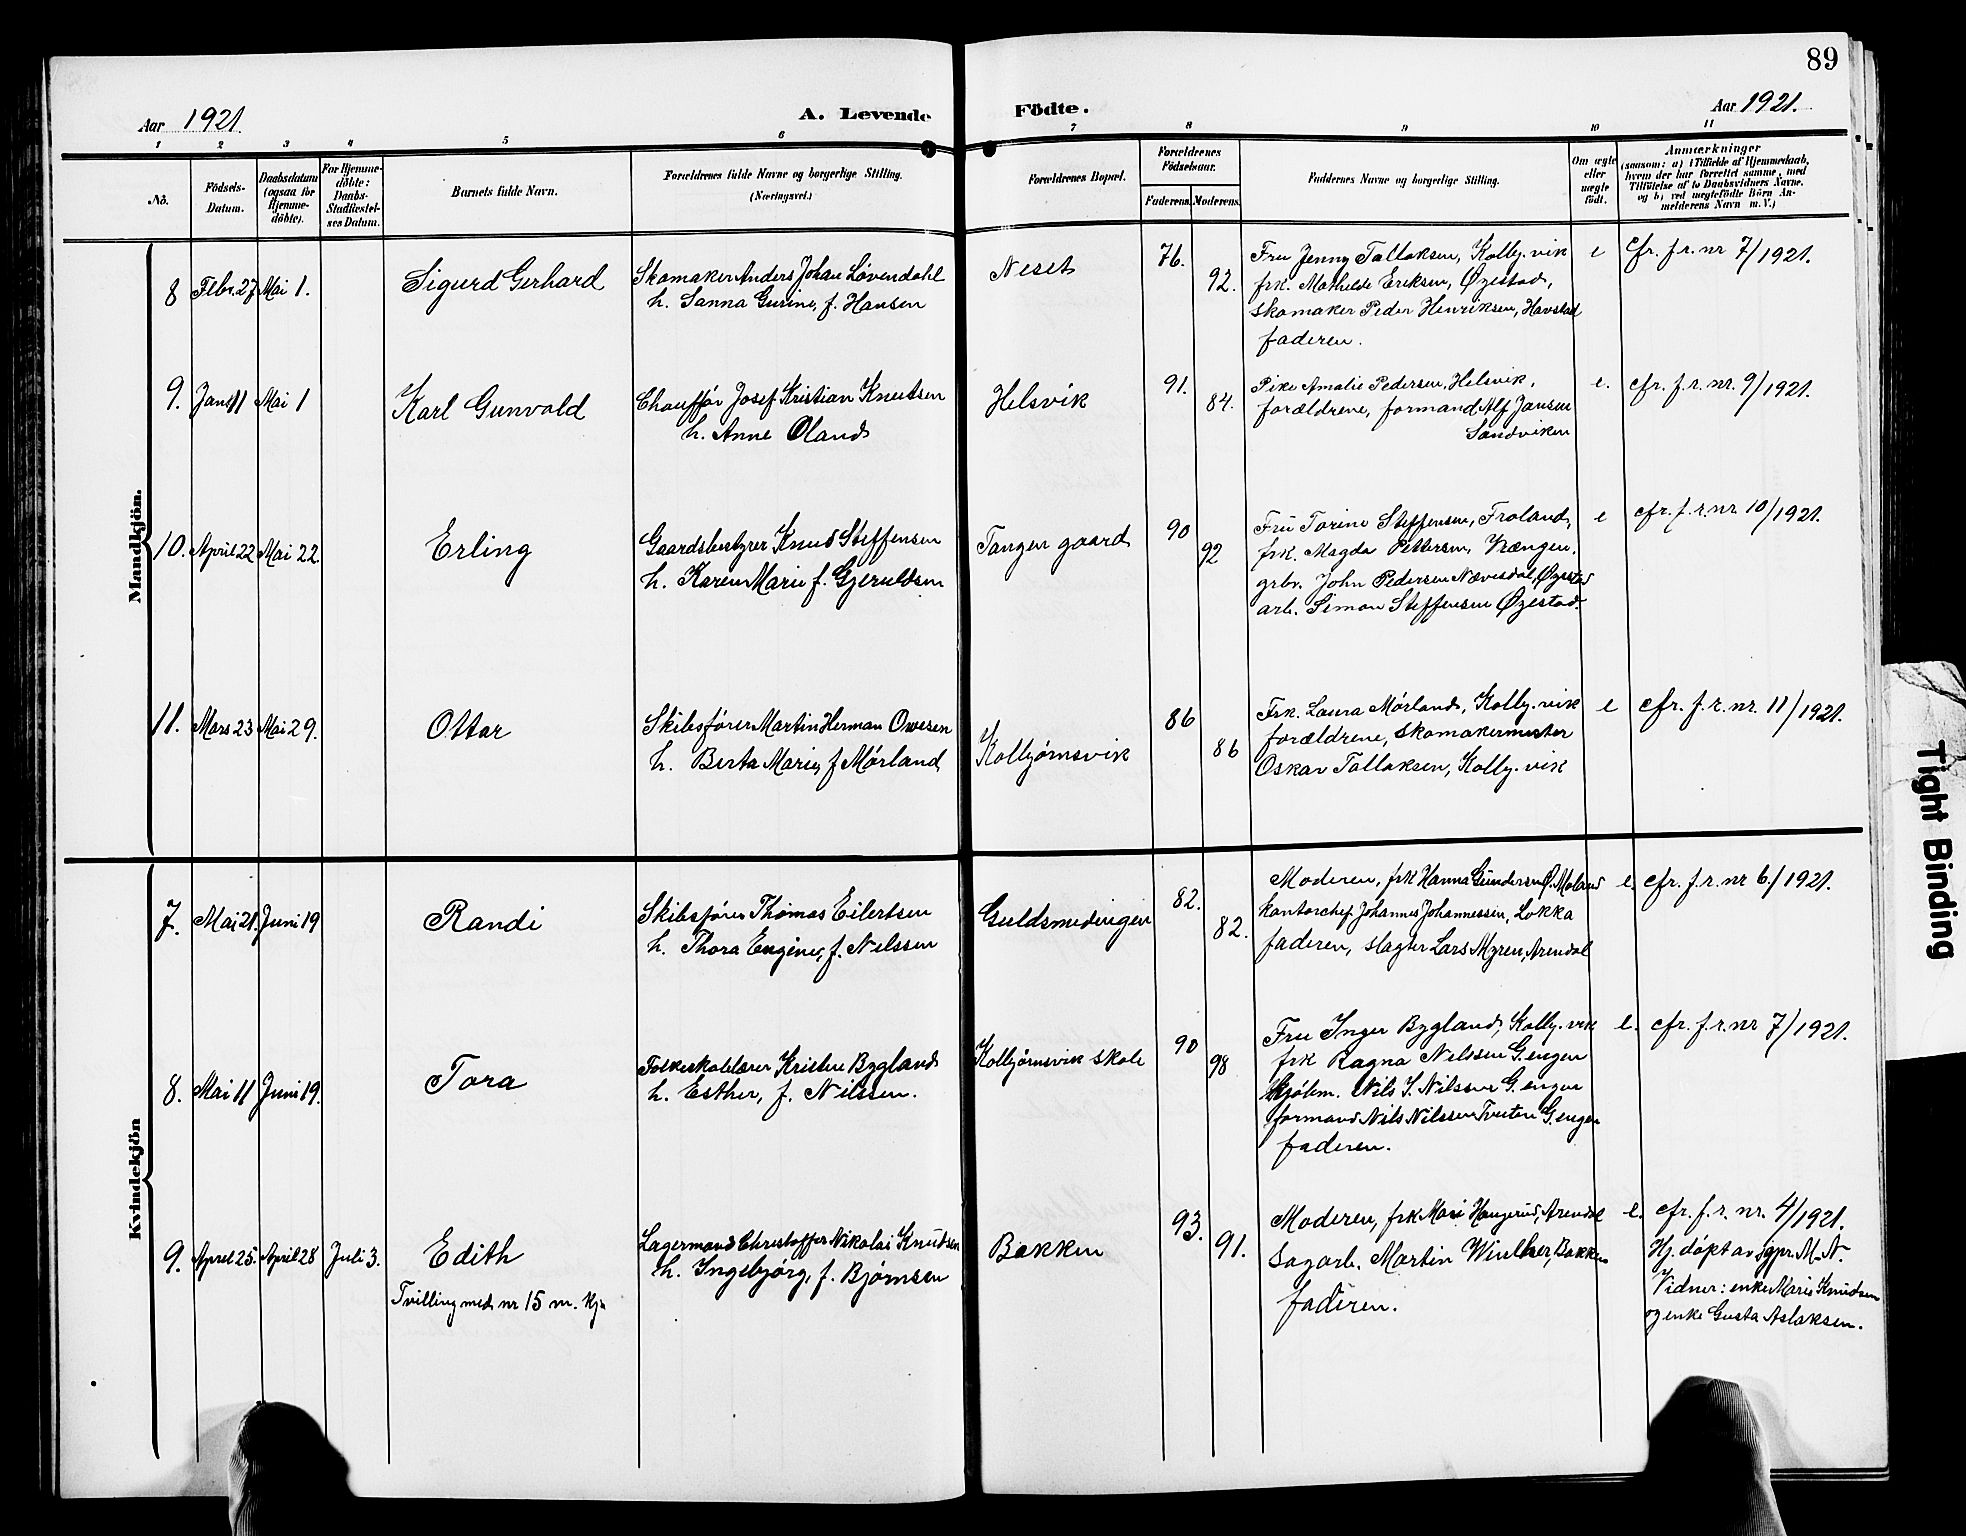 89
Aar 1921. A. Levende Födte. Aar 1921.
1 2 3 4 5 6 7 8 9 10 11
No.
Födsels-Datum.
Daabsdatum (ogsaa for Hjemmedöbte).
For Hjemmedöbte: Daabs-Stadfæstelses Datum.
Barnets fulde Navn.
Forældrenes fulde Navne og borgerlige Stilling.
(Næringsvei.)
Forældrenes Bopæl.
Forældrenes Födselsaar.
Faderens. Moderens.
Faddernes Navne og borgerlige Stilling.
Om ægte eller uægte födt.
Anmærkninger
(saasom: a) i Tilfælde af Hjemmedaab, hvem der har forrettet samme, med Tilföielse af to Daabsvidners Navne, og b) ved uægtefödte Börn Anmelderens Navn m. V.)
Mandkjön.
8 Febr. 27 Mai 1. Sigurd Gerhard
Skomaker Anders Johan Løvendahl
h. Sanna Gurine, f. Hansen
Neset 76. 92.
Fru Jenny Tallaksen, Kolby.vik
frk. Mathilde Eriksen, Øiestad,
skomaker Peder Henriksen, Havstad
faderen.
e cfr. f. r. nr 7/1921.
9. Jan. 11 Mai 1 Karl Gunvald
Chauffør Josef Kristian Knutsen
h. Anne Øland
Helsvik 91. 84.
Pike Amalie Pedersen, Helsvik,
forældrene, formand Alf Jansen
Sandviken
e. cfr. f. r. nr. 9/1921.
10. April 22 Mai 22. Erling
Gaardsbestyrer Knud Steffensen
h. Karen Marie f. Gjeruldsen
Tangen gaard 90 92
Fru Torine Steffensen, Froland,
frk. Magda Pettersen, Vrængen.
grbr. John Pedersen Nævesdal, Øyestad
arb. Simon Steffensen Øiestad.
e cfr. f. r. nr 10/1921.
11. Mars 23 Mai 29. Ottar
Skibsfører Martin Herman Owesen
h. Berta Marie, f. Mørland
Kolbjørnsvik 86 86
Frk. Laura Mørland, Kolby.vik
forældrene, skomakermester
Oskar Tallaksen, Kolby.vik
e cfr. f. r. nr. 11/1921.
Kvindekjön
7. Mai 21. Juni 19 Randi
Skibsfører Thomas Eilertsen
h. Thora Eugine, f. Nilssen
Guldsmedengen 82. 82.
Moderen, frk Hanna Gundersen Ø. Moland
kontorchef Johannes Johannessen, Løkka
faderen, slagter Lars Myren, Arendal
e. cfr. f. r. nr 6/1921.
8. Mai 11 Juni 19. Tora
Folkeskolelærer Kristen Bygland
h. Esther, f. Nilssen.
Kolbjørnsvik skole 90 98
Fru Inger Bygland, Kolby.vik
frk Ragna Nilssen G.engen
Skjølm. Nils S. Nilssen G.engen
formand Nils Nilssen Tveiten G.engen
faderen.
e. cfr. f. r. nr 7/1921.
9. April 25. April 28 Juli 3. Edith
Tvilling med nr 15 m. kjn
Lagermand Christoffer Nikolai Knutsen
h. Ingebjørg, f. Bjørnsen
Bakken 93. 91.
Moderen, frk Mari Haugerud, Arendal
Sagarb. Martin Winther, Bakken
faderen.
e. cfr. f. r. nr. 4/1921.
Hj. døpt av sgpr. M. N.
Vidner: enke Marie Knudsen
og enke Gusta Aslaksen.
Tight Binding